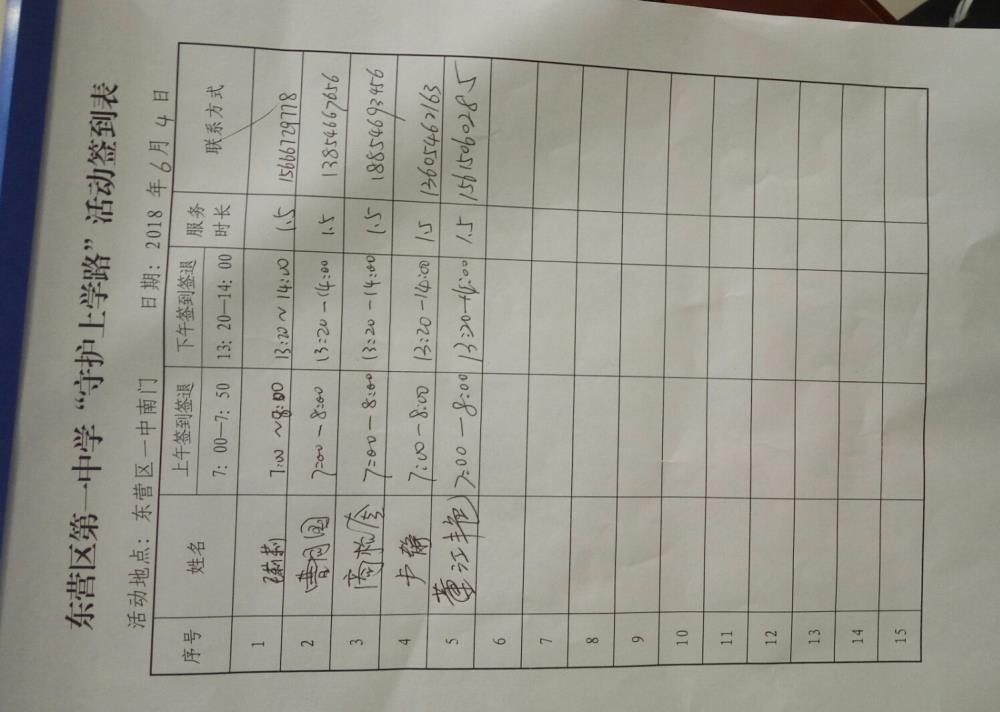 东营区第一中学“守护上学路”活动签到表
活动地点：东营区一中南门 日期：2018 年 6 月 4 日
序号 姓名 上午签到签退 7：00—7：50 下午签到签退 13：20—14：00 服务时长 联系方式
1 7:00~8:00 13:20~14:00 1.5 15666729778
2 7:00-8:00 13:20-14:00 1.5 13854667656
3 7:00-8:00 13:20-14:00 1.5 18854693456
4 卢静 7:00-8:00 13:20-14:00 1.5 13605462163
5 董江艳 7:00-8:00 13:20-14:00 1.5 15615060285
6
7
8
9
10
11
12
13
14
15